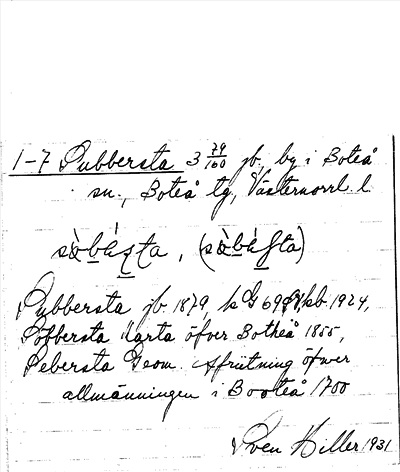 1-7 Subbersta 3 79/160 jb, by i Boteå
sn., Boteå tg, Västernorrl. l.
sò̱bá̱ʂta, (sò̱bá̱ʃta)
Subbersta jb. 1879, k G 69 kb. 1924,
Söbbersta Karta öfver Botheå 1855,
Sebersta Geom. Afritning öfwer
allmänningen i Booteå 1700
Sven Hiller 1931